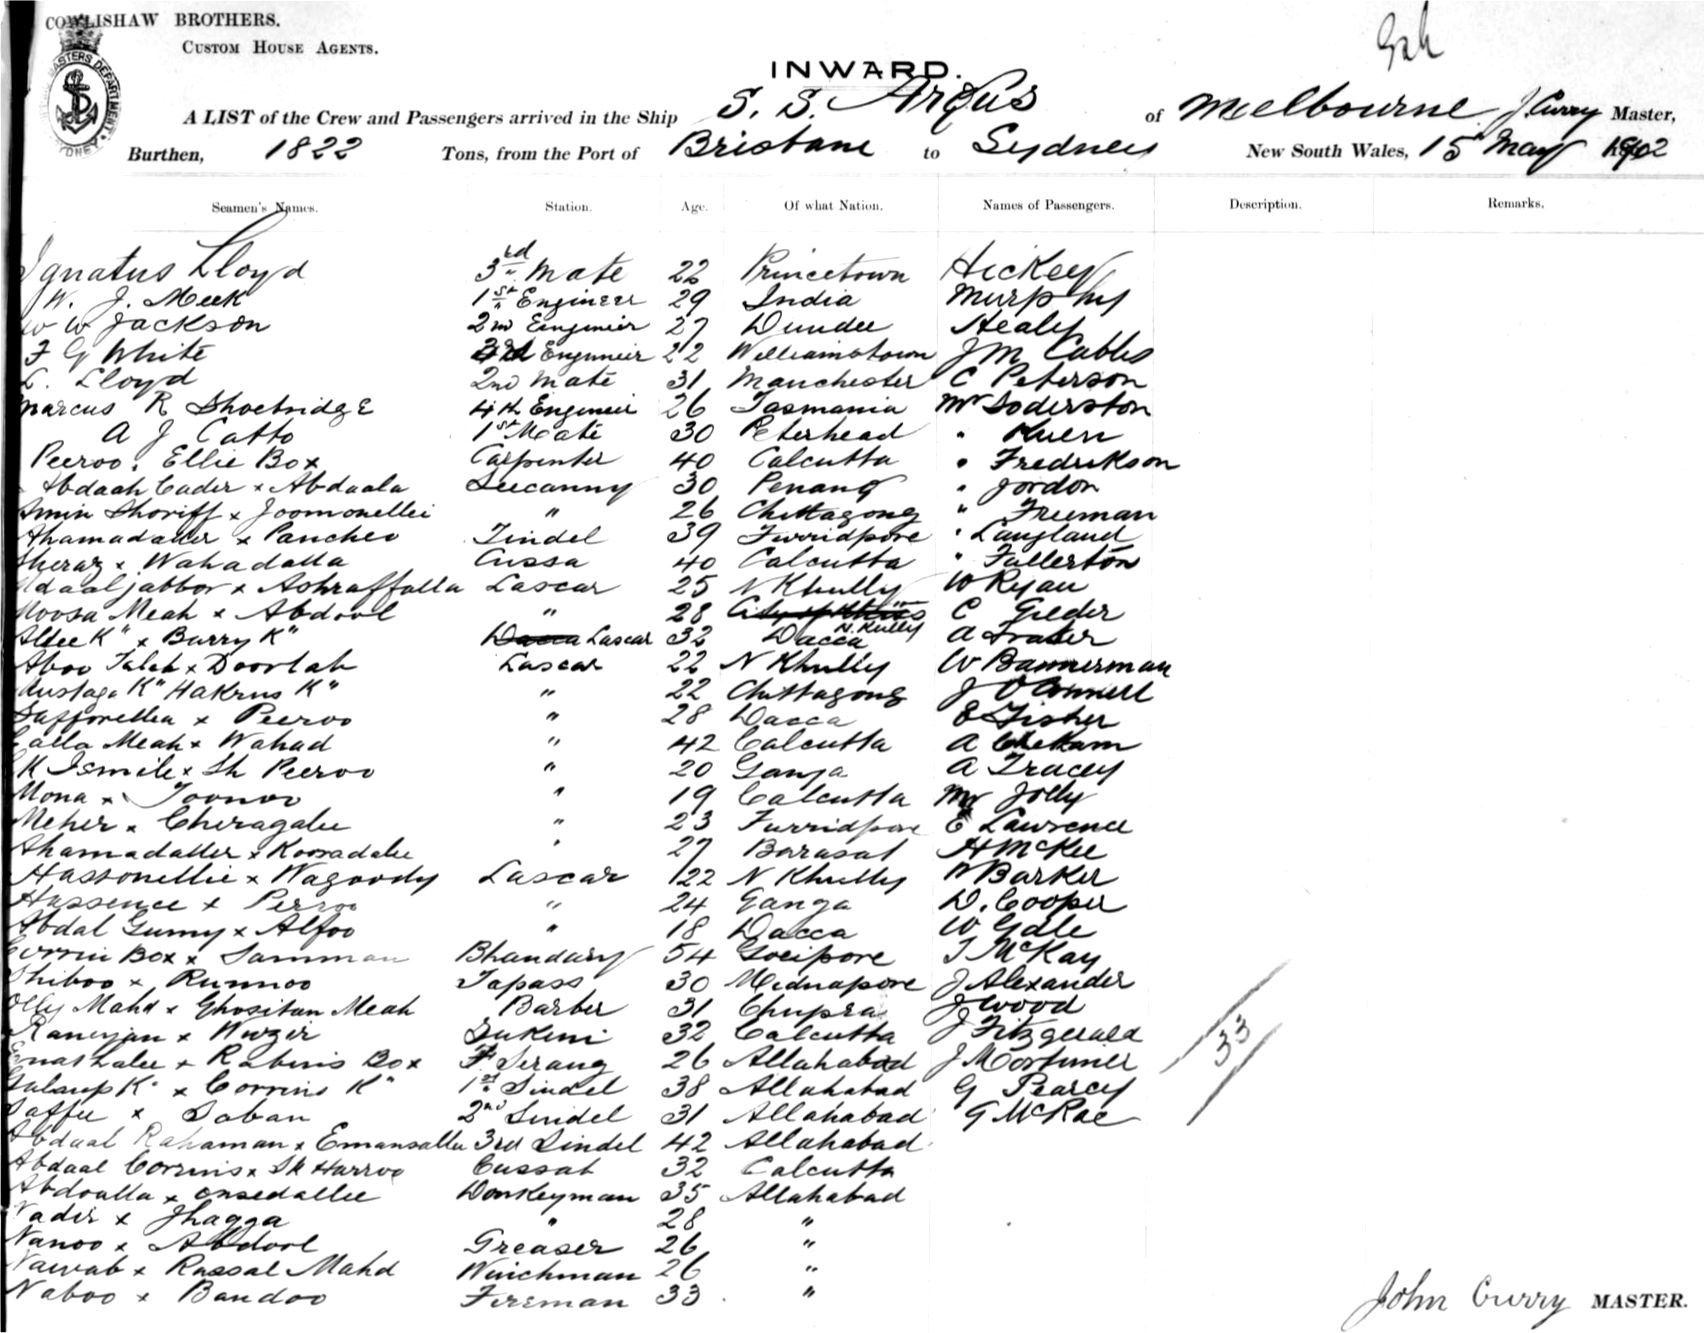 COWLISHAW BROTHERS.
CUSTOM HOUSE AGENTS.
INWARD.
A LIST of the Crew and Passengers arrived in the Ship S. S. Argus of Melbourne J. Curry Master,
Burthen, 1822 Tons, from the Port of Brisbane to Sydney New South Wales, 15 May 1902
Seamen's Names. Station. Age. Of what Nation. Names of Passengers. Description. Remarks.
Ignatus Lloyd 3rd Mate 22 Princetown Hickey
W. J. Meek 1st Engineer 29 India Murphy
W W Jackson 2nd Engineer 27 Dundee Healy
F G White 3rd Engineer 22 Williamstown J M Cables
L. Lloyd 2nd Mate 31 Manchester C Peterson
Marcus R Shoebridge 4th Engineer 26 Tasmania Mr Soderston
A J Catto 1st Mate 30 Peterhead " Kuen
Peeroo. Ellie Box Carpenter 40 Calcutta " Fredrikson
Abdaah Cader x Abdaala Seecunny 30 Penang " Jordon
Amin Shoriff x Joomonellie " 26 Chittagong " Freeman
Ahamadaller x Pancheo Tindel 39 Furridpore " Langland
Sheraz x Wahadalla Cussa 40 Calcutta " Fullerton
Adaaljabbor x Ashraffalla Lascar 25 N Khully W Ryan
Moosa Meah x Abdool " 28 C Gilder
Allee K" x Burry K" Dacca Lascar 32 Dacca N. Kully A Fraser
Aboo Taleb x Doorlah Lascar 22 N Khully W Bannerman
Mustaga K" Hakrus K" " 22 Chittagong J O Connell
Safforellea x Peeroo " 28 Dacca E Fisher
Lalla Meah x Wahad " 42 Calcutta A
SK Ismile x Sh Peeroo " 20 Ganja A Tracey
Mona x Toonoo " 19 Calcutta Mr Jolly
Meher x Cheragalee " 23 Furridpore E Lawrence
Ahamadaller x Koosadalee " 27 Barasat H McKee
Hassonellie x Wagoody Lascar 22 N Khully Barker
Hassence x Perroo " 24 Ganga D. Cooper
Abdal Gunny x Alfoo " 18 Dacca W Gale
Corrim Box x Samman Bhandary 54 Gocipore T McKay
Shiboo x Runnoo Topass 30 Midnapore J Alexander
Olly Mahd x Ghositan Meah Barber 31 Chupra J Wood
Ramjan x Wuzir Sukeni 32 Calcutta J Fitzgerald
Enat Lalee x Rabins Box F Serang 26 Allahabad J Mortimer
Gulaup K" x Corrins K" 1st Tindel 38 Allahabad G Pearcy
Saffee x Soban 2nd Tindel 31 Allahabad G McRae
33
Abdaal Rahaman x Emansalla 3rd Tindel 42 Allahabad
Abdaal Corrins x SK Harroo Cussab 32 Calcutta
Abdoalla x Onsedallee Donkeyman 35 Allahabad
Nadir x Jhagga " 28 "
Nanoo x Abdool Greaser 26 "
Nawab x Rassal Mahd Winchman 26 "
Naboo x Bandoo Fireman 33 "
John Curry MASTER.